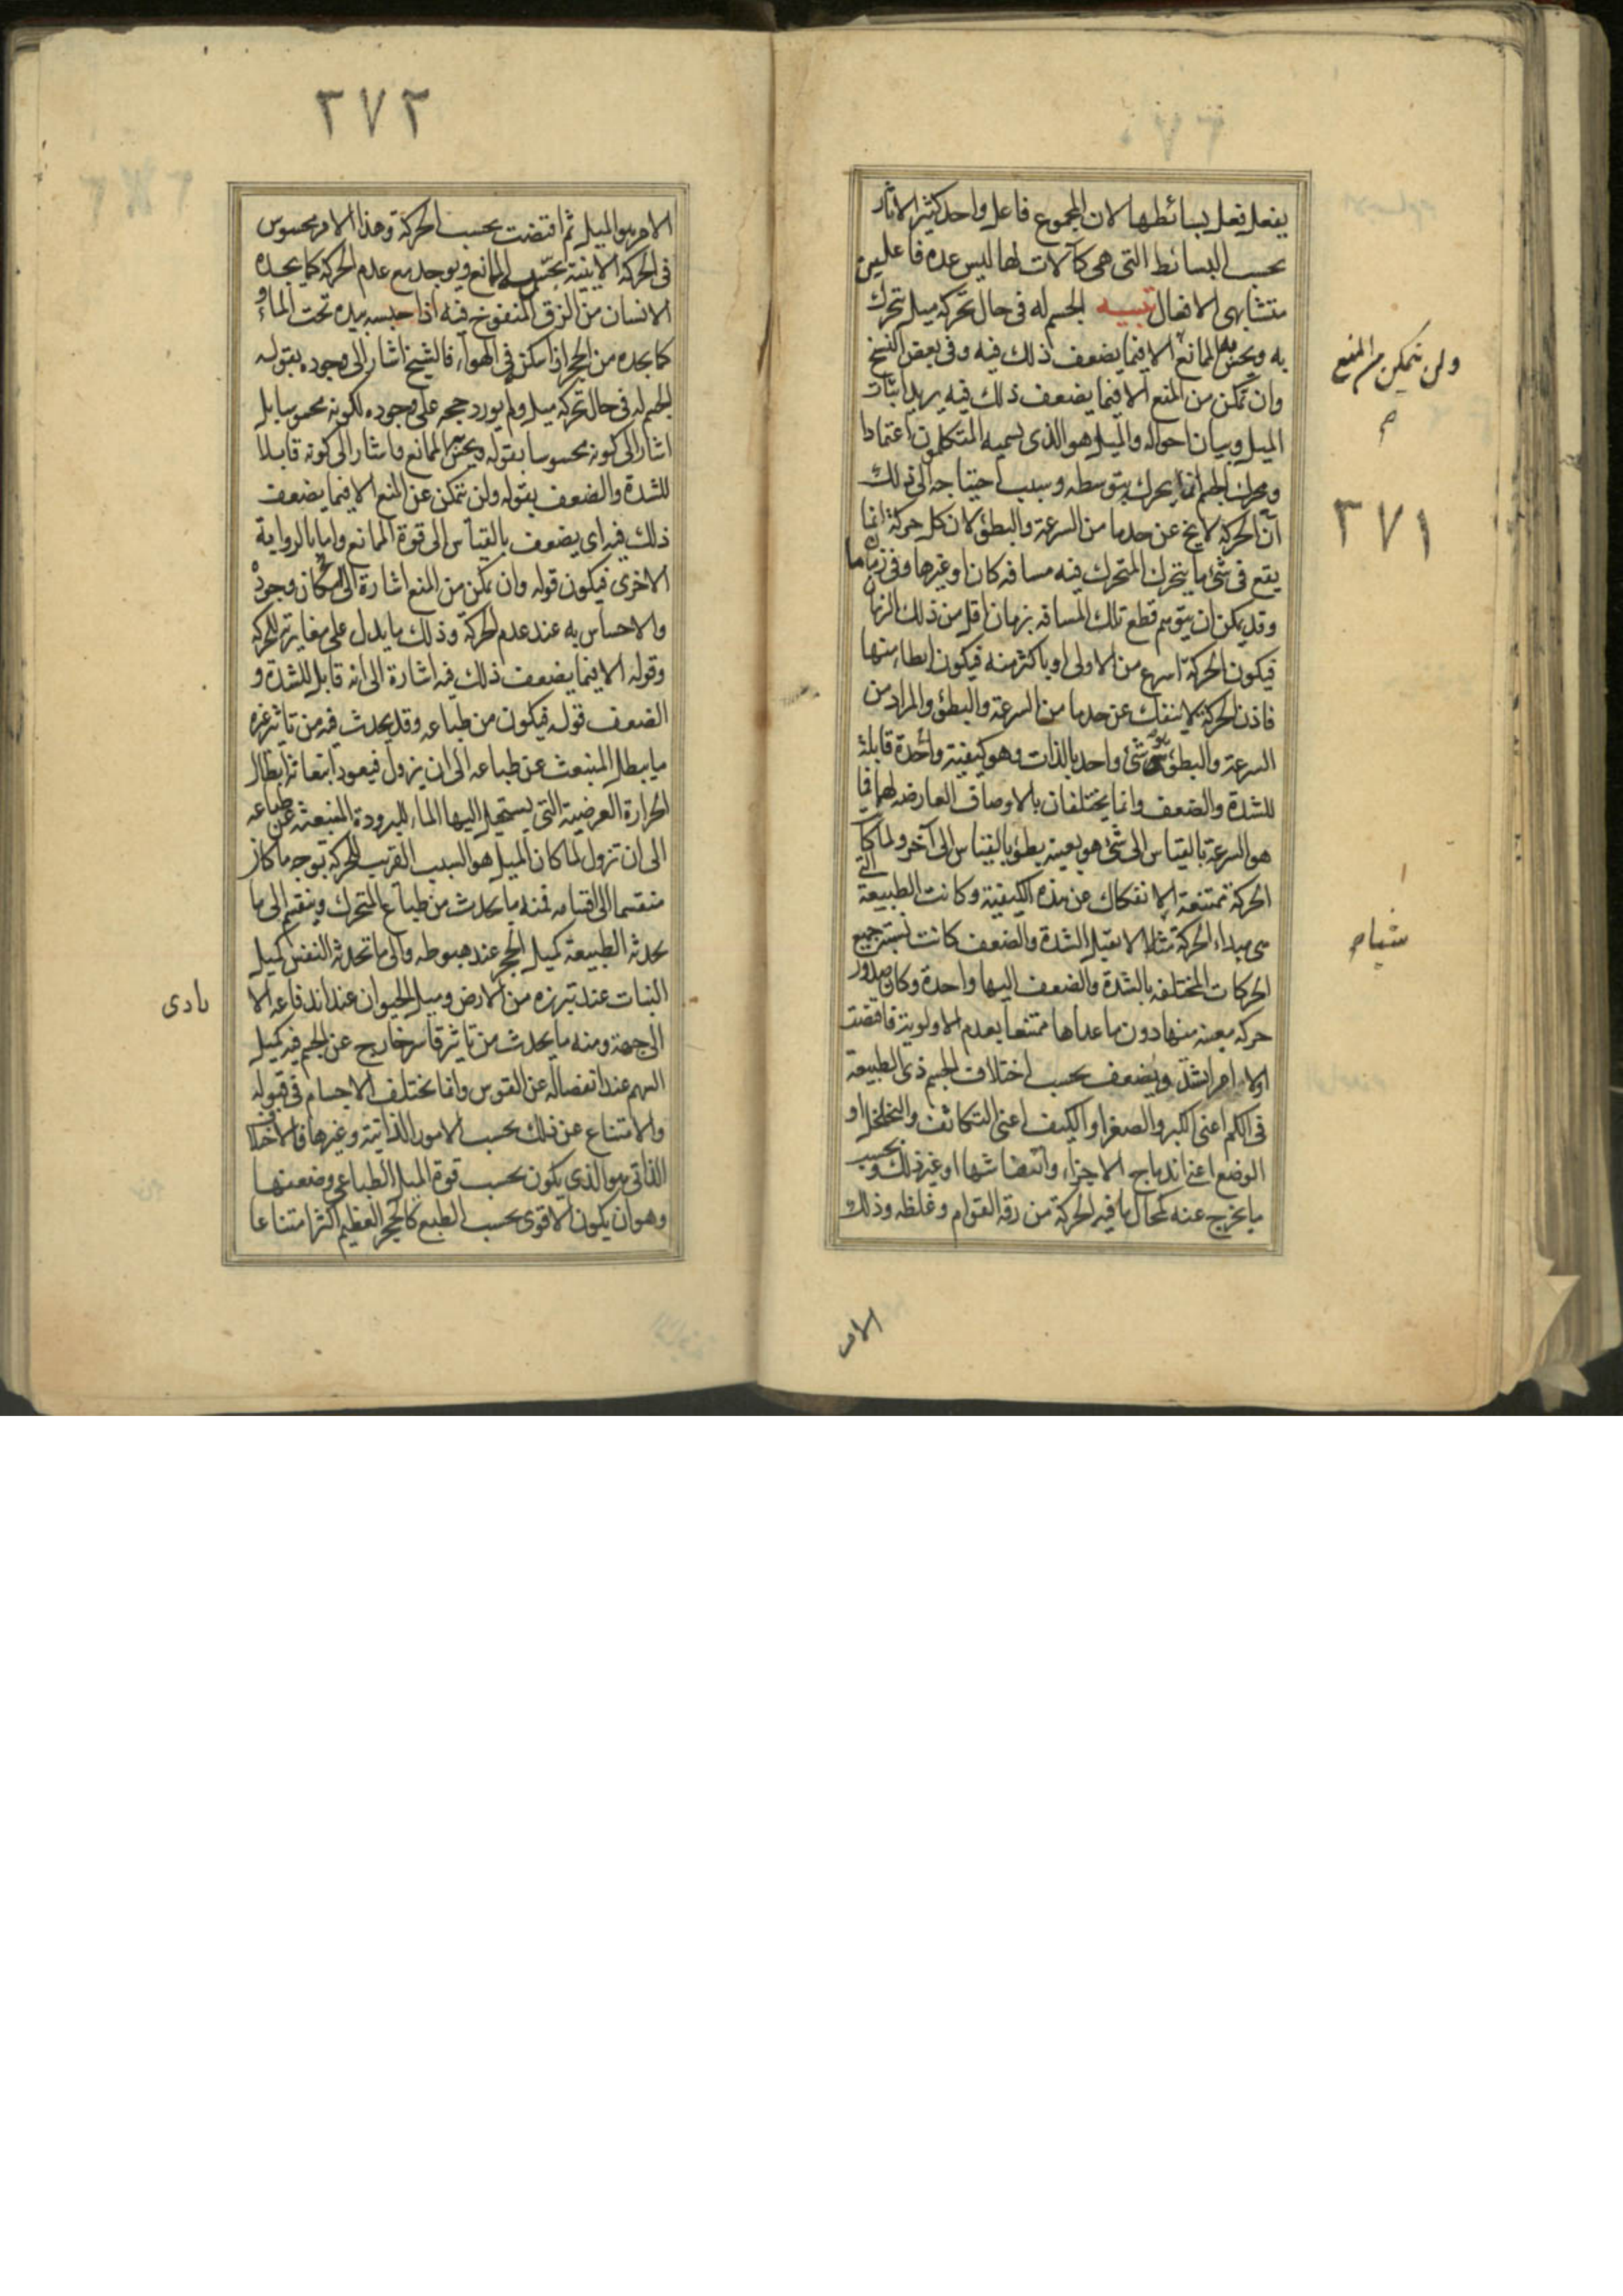 يفعل فعل بسائطها لان المجموع فاعل واحد كثير الاثار
بحسب البسائط التى هى كآلات لها ليس عدة فاعلين
متشابهى الافعال تنبيه الجسم له فى حال تحركه ميل يتحرك
به ويحس به الممانع الا فيما يضعف ذلك فيه وفى بعض النسخ
وان تمكن من المنع الا فيما يضعف ذلك فيه يريد اثبات
الميل وبيان احواله والميل هو الذى يسميه المتكلمون اعتمادا
ومحرك الجسم انما يحرك بتوسطه وسبب احتياجه الى ذلك
ان الحركة لا يخ عن حد ما من السرعة والبطؤ لان كل حركة انما
يقع فى شئ ما يتحرك المتحرك فيه مسافة كان او غيرها وفى زمان ما
وقد يمكن ان يتوهم قطع تلك المسافة بزمان اقل من ذلك الزمان
فيكون الحركة اسرع من الاولى او باكثر منه فيكون ابطا منها
فاذن الحركة لا ينفك عن حد ما من السرعة والبطؤ والمراد من
السرعة والبطؤ شئ واحد بالذات وهو كيفية واحدة قابلة
للشدة والضعف وانما يختلفان بالاوصاف العارضة لهما فما
هو السرعة بالقياس الى شئ هو بعينه بطؤ بالقياس الى آخر ولما كا
الحركة ممتنعة الانفكاك عن هذه الكيفية وكانت الطبيعة التى
هى مبداء الحركة شيئا لا يقبل الشدة والضعف كانت نسبة جميع
الحركات المختلفة بالشدة والضعف اليها واحدة وكان صدور
حركة معينة منها دون ما عداها ممتنعا بعدم الاولوية فاقتضت
اولا امرا يشتد ويضعف بحسب اختلاف الجسم ذى الطبيعة
فى الكم اعنى الكبر والصغر او الكيف اعنى التكاثف والتخلخل او
الوضع اعنى اندماج الاجزاء وانتفاشها او غير ذلك وبحسب
ما يخرج عنه كحال ما فيه الحركة من رقة القوام وغلظه وذلك
الامر
ولن يتمكن من المنع
م
٣٧١
شيئا م
٣٧٢
الامر هو الميل ثم اقتضت بحسبه الحركة وهذا الامر محسوس
فى الحركة الاينية يحس به الممانع ويوجد مع عدم الحركة كما يجده
الانسان من الزق المنفوخ فيه اذا حبسه بيده تحت الماء و
كما يجده من الحجر اذا اسكنه فى الهواء فالشيخ اشار الى وجوده بقوله
الجسم له فى حال تحركه ميل ولم يورد حجة على وجوده لكونه محسوسا بل
اشار الى كونه محسوسا بقوله ويحس به الممانع واشار الى كونه قابلا
للشدة والضعف بقوله ولن يتمكن عن المنع الا فيما يضعف
ذلك فيه اى يضعف بالقياس الى قوة الممانع واما بالرواية
الاخرى فيكون قوله وان تمكن من المنع اشارة الى امكان وجوده
والاحساس به عند عدم الحركة وذلك ما يدل على مغايرته للحركة
وقوله الا فيما يضعف ذلك فيه اشارة الى انه قابل للشدة و
الضعف قوله فيكون من طباعه وقد يحدث فيه من تاثير غيره
ما يبطل المنبعث عن طباعه الى ان يزول فيعود انبعاثه ابطال
الحرارة العرضية التى يستحيل اليها الماء للبرودة المنبعثة عن طباعه
الى ان تزول لما كان الميل هو السبب القريب للحركة بوجه ما كان
منقسما الى اقسامه فمنه ما يحدث من طباع المتحرك وينقسم الى ما
يحدثه الطبيعة كميل الحجر عند هبوطه والى ما تحدثه النفس كميل
النبات عند تبرزه من الارض وميل الحيوان عند اندفاعه الا
رادى
الى جهة ومنه ما يحدث من تاثير قاسر خارج عن الجسم فيه كميل
السهم عند انفصاله عن القوس وانما يختلف الاجسام فى قبوله
والامتناع عن ذلك بحسب الامور الذاتية وغيرها فالاختلاف
الذاتى هو الذى يكون بحسب قوة الميل الطباعى وضعفها
وهو ان يكون الاقوى بحسب الطبع كالحجر العظيم اكثر امتناعا